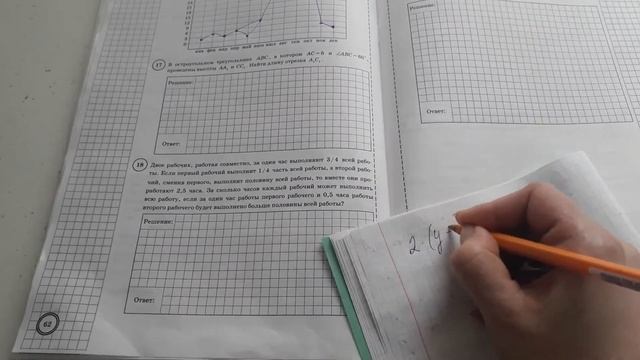 янв фев мар апр май июн июл авг сен окт ноя дек
17
В остроугольном треугольнике ABC, в котором AC=b и ∠ABC=60°,
проведены высоты AA₁ и CC₁. Найти длину отрезка A₁C₁.
Решение:
Ответ:
18
Двое рабочих, работая совместно, за один час выполняют 3/4 всей рабо-
ты. Если первый рабочий выполнит 1/4 часть всей работы, а второй рабо-
чий, сменив первого, выполнит половину всей работы, то вместе они про-
работают 2,5 часа. За сколько часов каждый рабочий может выполнить
всю работу, если за один час работы первого рабочего и 0,5 часа работы
второго рабочего будет выполнено больше половины всей работы?
Решение:
Ответ:
62
Решение:
Ответ:
2. (y